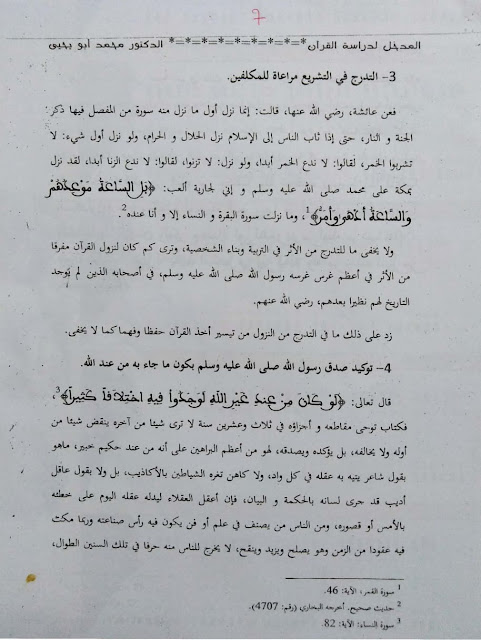 7
المدخل لدراسة القرآن *=*=*=*=*=*=*=*=*=* الدكتور محمد أبو يحيى
3- التدرج في التشريع مراعاة للمكلفين.
فعن عائشة، رضي الله عنها، قالت: إنما نزل أول ما نزل منه سورة من المفصل فيها ذكر
الجنة و النار، حتى إذا ثاب الناس إلى الإسلام نزل الحلال و الحرام، ولو نزل أول شيء: لا
تشربوا الخمر، لقالوا: لا ندع الخمر أبدا، ولو نزل: لا تزنوا، لقالوا: لا ندع الزنا أبدا، لقد نزل
بمكة على محمد صلى الله عليه وسلم و إني لجارية ألعب: ﴿بَلِ السَّاعَةُ مَوْعِدُهُمْ
وَالسَّاعَةُ أَدْهَى وَأَمَرُّ﴾1، وما نزلت سورة البقرة و النساء إلا و أنا عنده2.
ولا يخفى ما للتدرج من الأثر في التربية وبناء الشخصية، وترى كم كان لنزول القرآن مفرقا
من الأثر في أعظم غرس غرسه رسول الله صلى الله عليه وسلم، في أصحابه الذين لم يوجد
التاريخ لهم نظيرا بعدهم، رضي الله عنهم.
زد على ذلك ما في التدرج من النزول من تيسير أخذ القرآن حفظا وفهما كما لا يخفى.
4- توكيد صدق رسول الله صلى الله عليه وسلم بكون ما جاء به من عند الله.
قال تعالى: ﴿لَوْ كَانَ مِنْ عِندِ غَيْرِ اللَّهِ لَوَجَدُوا فِيهِ اخْتِلَافًا كَثِيرًا﴾3،
فكتاب توحى مقاطعه و أجزاؤه في ثلاث وعشرين سنة لا ترى شيئا من آخره ينقض شيئا من
أوله ولا يخالفه، بل يؤكده ويصدقه، لهو من أعظم البراهين على أنه من عند حكيم خبير، ماهو
بقول شاعر يتيه به عقله في كل واد، ولا كاهن تغره الشياطين بالأكاذيب، بل ولا بقول عاقل
أديب قد جرى لسانه بالحكمة و البيان، فإن أعقل العقلاء ليدله عقله اليوم على خطئه
بالأمس أو قصوره، ومن الناس من يصنف في علم أو فن يكون فيه رأس صناعته وربما مكث
فيه عقودا من الزمن وهو يصلح ويزيد وينقح، لا يخرج للناس منه حرفا في تلك السنين الطوال،
1 سورة القمر، الآية: 46.
2 حديث صحيح. أخرجه البخاري (رقم: 4707).
3 سورة النساء: الآية: 82.